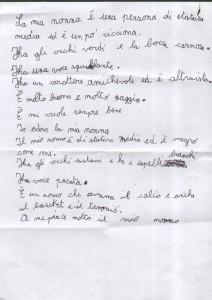 La mia nonna è una persona di statura
media ed è un po' cicciona.
Ha gli occhi verdi e la bocca carnosa.
Ha una voce squillante.
Ha un carattere amichevole ed è altruista.
È molto buona e molto saggia.
È mi vuole sempre bene.
Io adoro la mia nonna
Il mio nonno è di statura media ed è magro
come me.
Ha gli occhi castani e ha i capelli bianchi
Ha voce pacata.
È un nonno che ama il calcio e anche
il basket ed il tennis.
A me piace molto il mio nonno